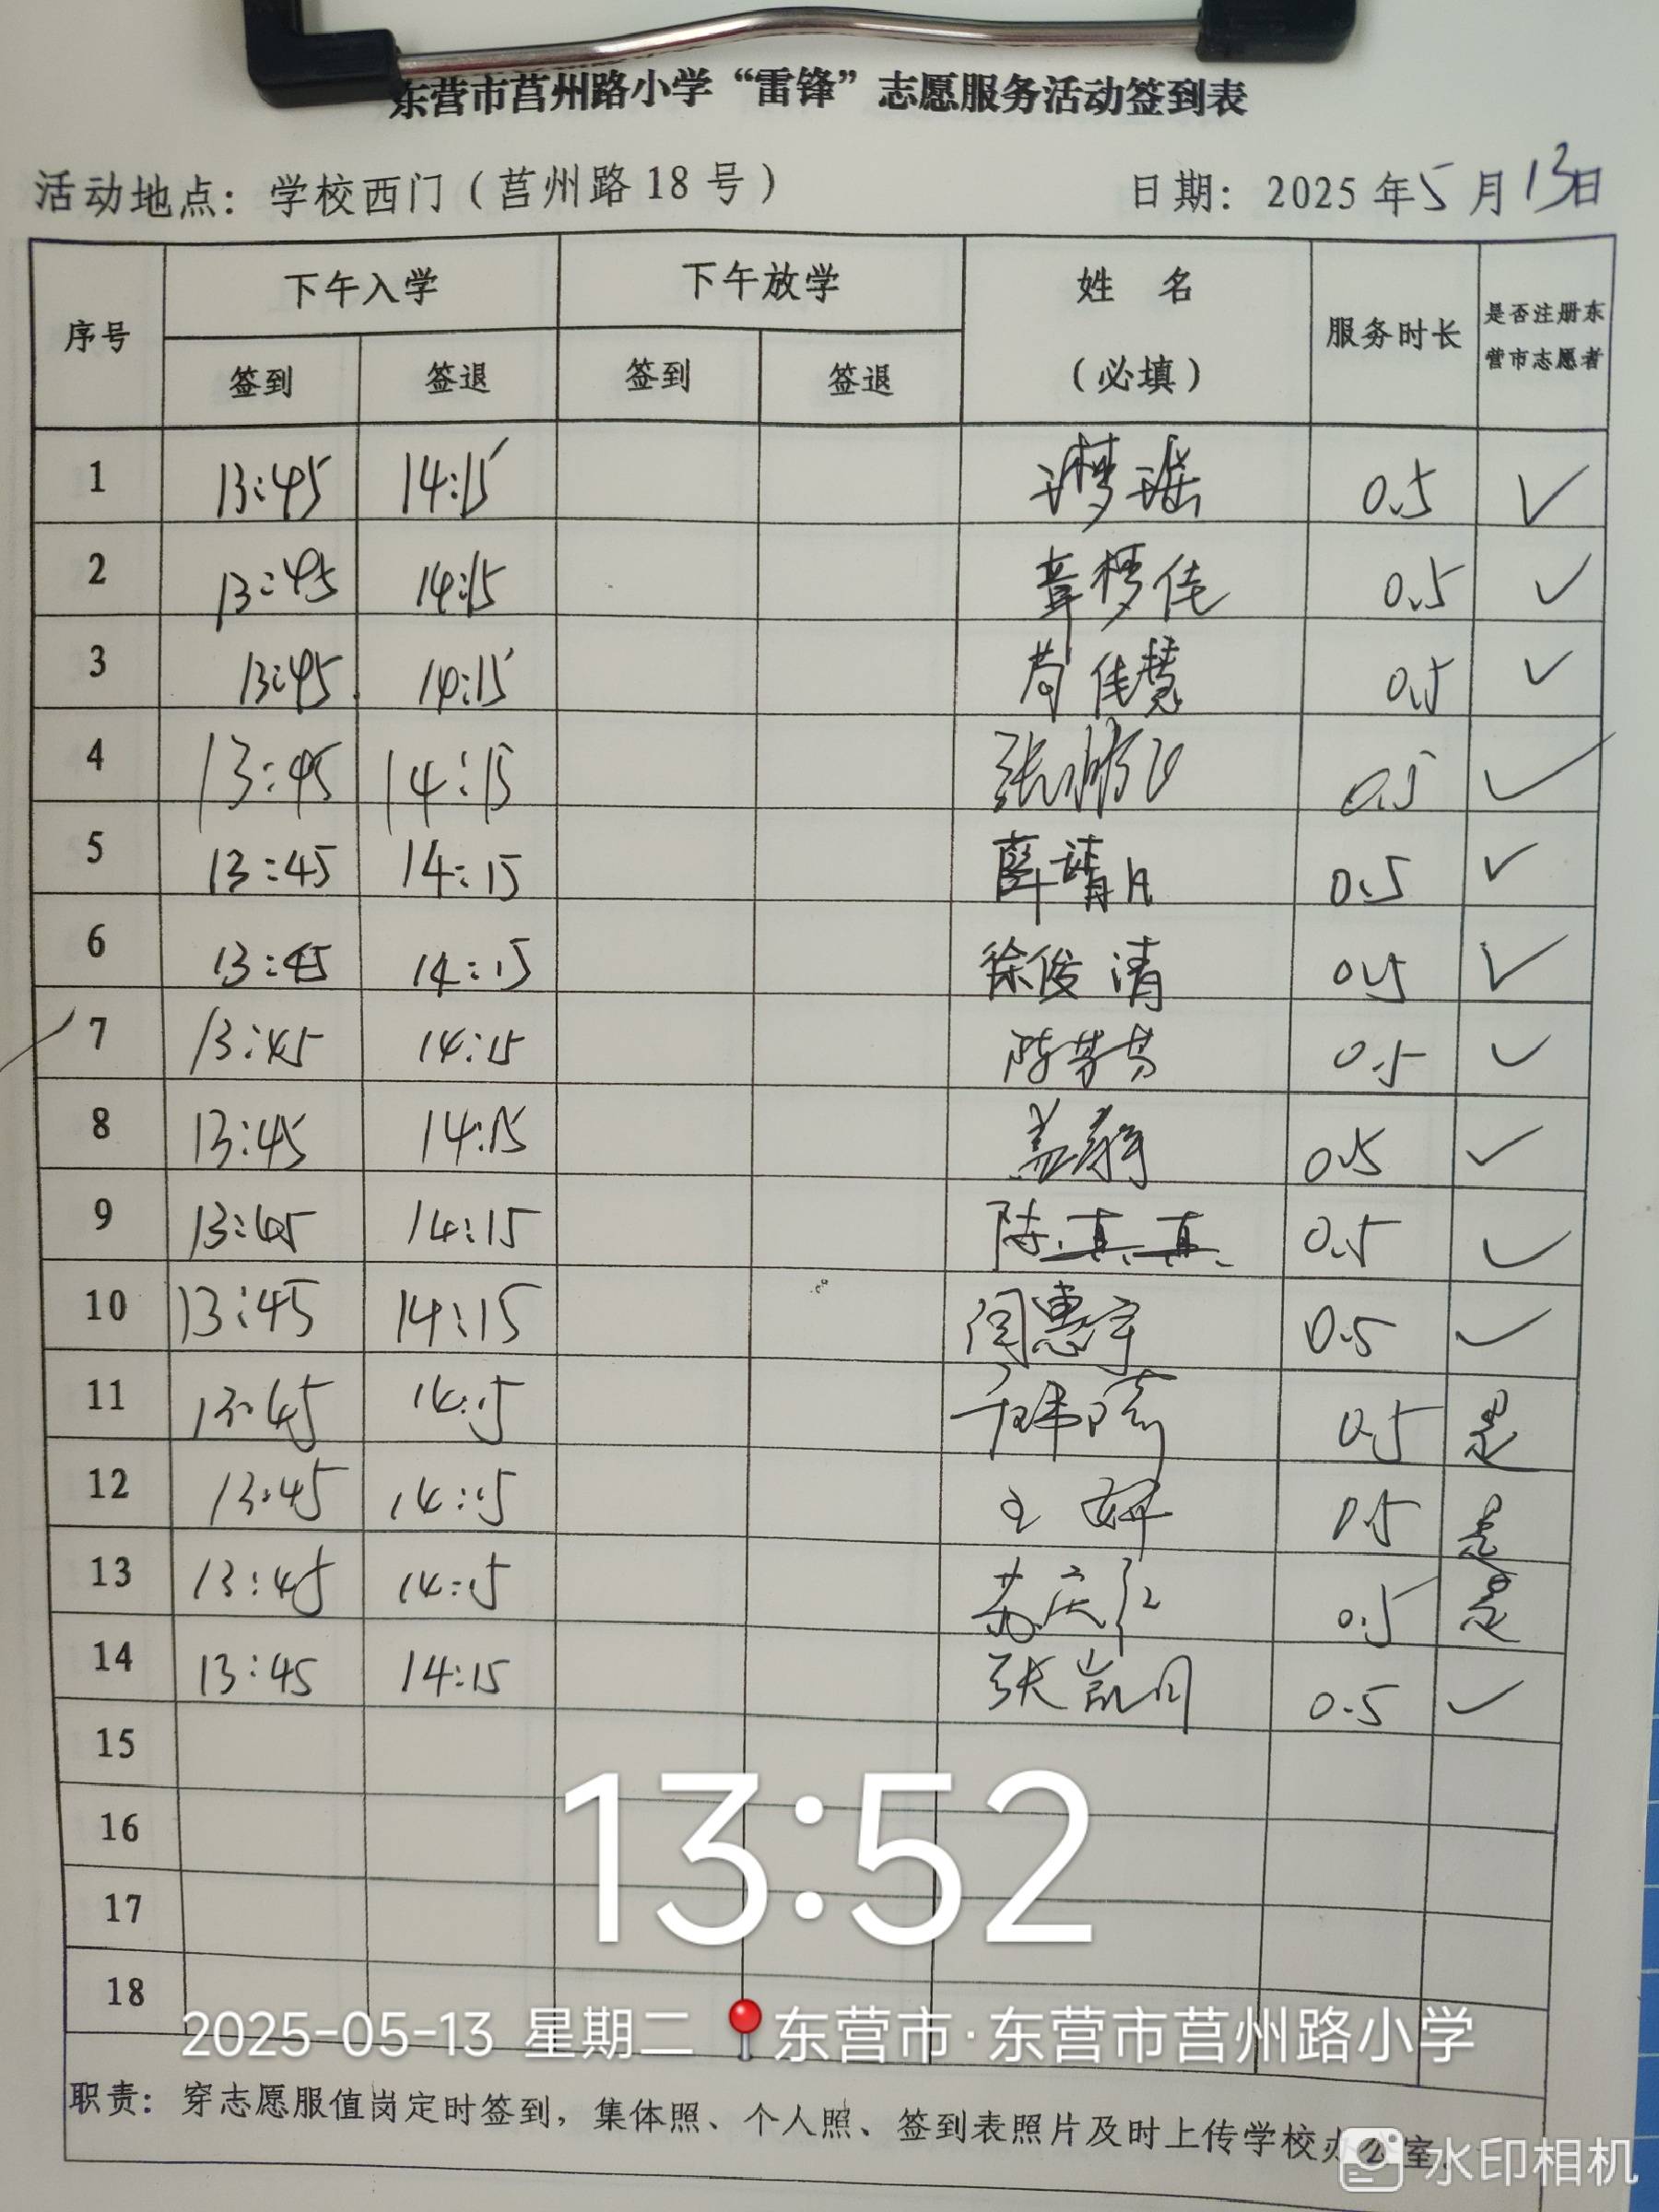 东营市莒州路小学“雷锋”志愿服务活动签到表
活动地点：学校西门（莒州路 18 号） 日期：2025 年 5 月 13 日
序号 下午入学 下午放学 姓 名（必填） 服务时长 是否注册东营市志愿者
签到 签退 签到 签退
1 13:45 14:15 0.5 ✓
2 13:45 14:15 0.5 ✓
3 13:45 14:15 苟佳慧 0.5 ✓
4 13:45 14:15 0.5 ✓
5 13:45 14:15 0.5 ✓
6 13:45 14:15 徐俊清 0.5 ✓
7 13:45 14:15 陈芳芳 0.5 ✓
8 13:45 14:15 0.5 ✓
9 13:45 14:15 陈真真 0.5 ✓
10 13:45 14:15 闫惠宇 0.5 ✓
11 13:45 14:15 0.5 是
12 13:45 14:15 王妍 0.5 是
13 13:45 14:15 0.5 是
14 13:45 14:15 张凯月 0.5 ✓
15
16
17
18
13:52
2025-05-13 星期二 东营市·东营市莒州路小学
职责：穿志愿服值岗定时签到，集体照、个人照、签到表照片及时上传学校办公室。
水印相机